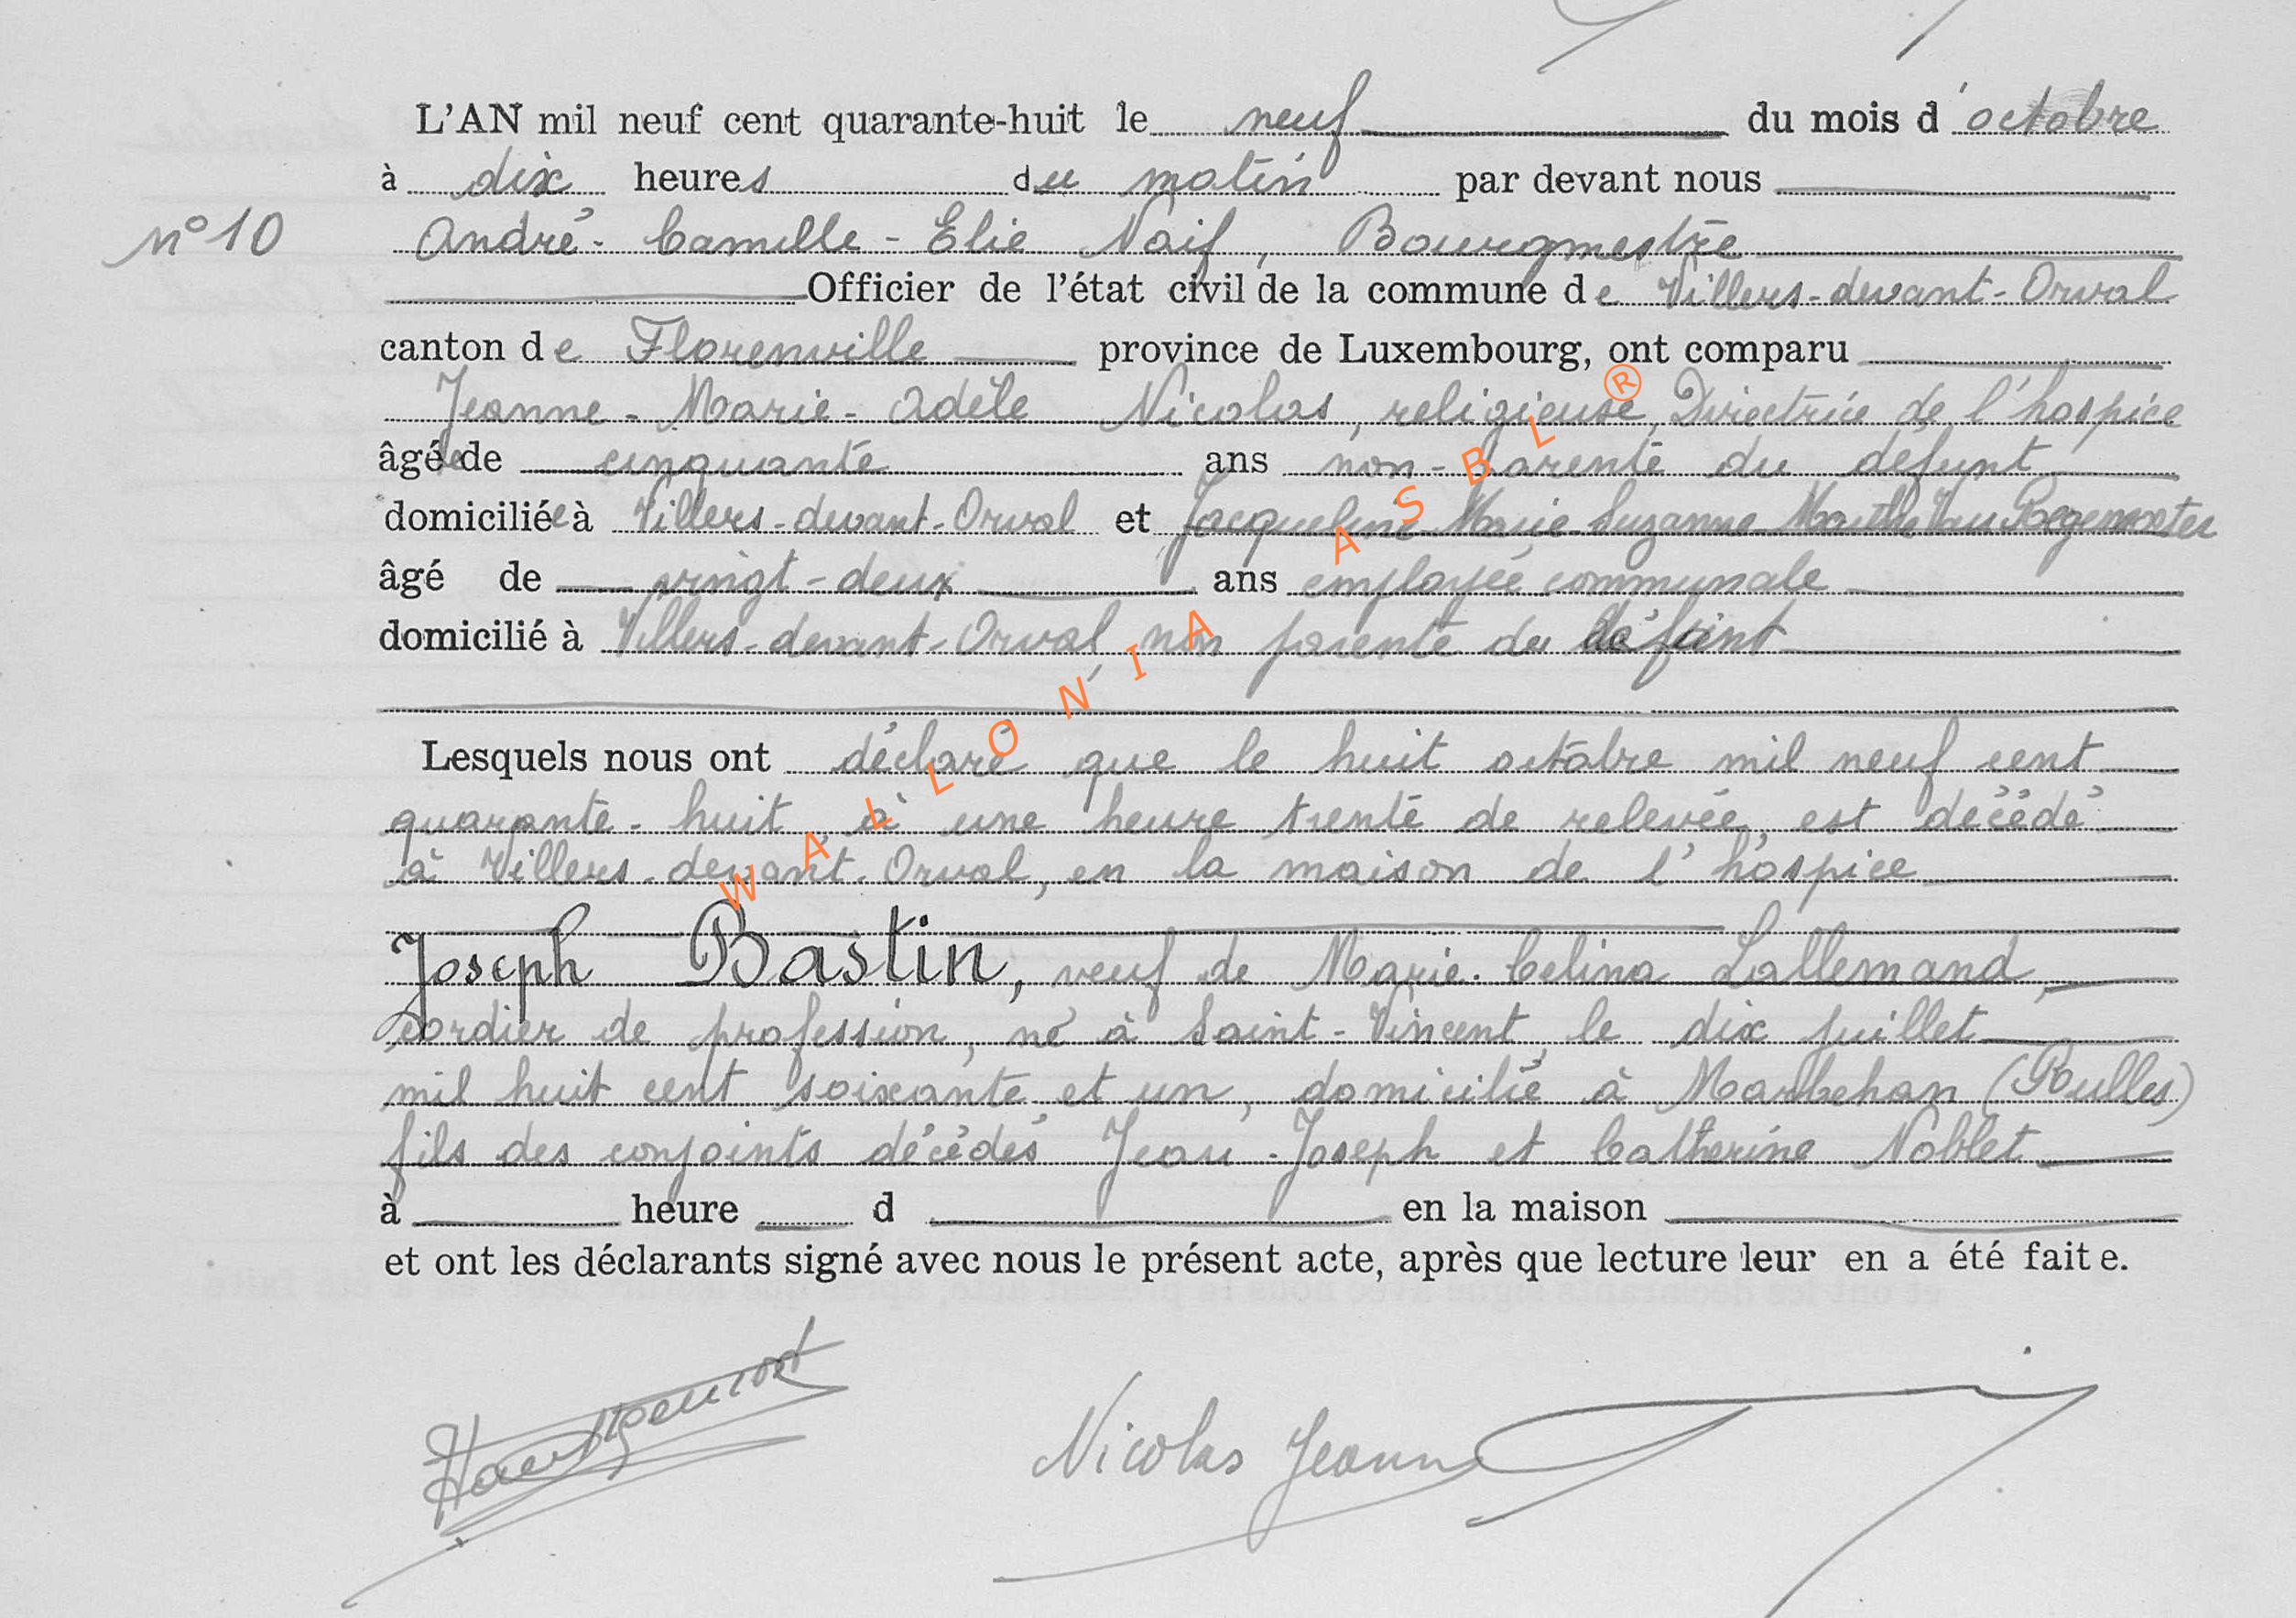 L'AN mil neuf cent quarante-huit le neuf du mois d'octobre
à dix heures du matin par devant nous
n° 10 André-Camille-Elie Naif, Bourgmestre
Officier de l'état civil de la commune de Villers-devant-Orval
canton de Florenville province de Luxembourg, ont comparu
Jeanne-Marie-Adèle Nicolas, religieuse, Directrice de l'hospice
âgée de cinquante ans non-parente du défunt
domiciliée à Villers-devant-Orval et Jacqueline Marie Suzanne Marthe Van Regemorter
âgé de vingt-deux ans employée communale
domicilié à Villers-devant-Orval, non parente du défunt
Lesquels nous ont déclaré que le huit octobre mil neuf cent
quarante-huit à une heure trente de relevée, est décédé
à Villers-devant-Orval, en la maison de l'hospice
Joseph Bastin, veuf de Marie-Celina Lallemand,
cordier de profession, né à Saint-Vincent, le dix juillet
mil huit cent soixante et un, domicilié à Marbehan (Rulles)
fils des conjoints décédés Jean-Joseph et Catherine Noblet
à heure d en la maison
et ont les déclarants signé avec nous le présent acte, après que lecture leur en a été faite.
Nicolas Jeanne
WALLONIA ASBL ®